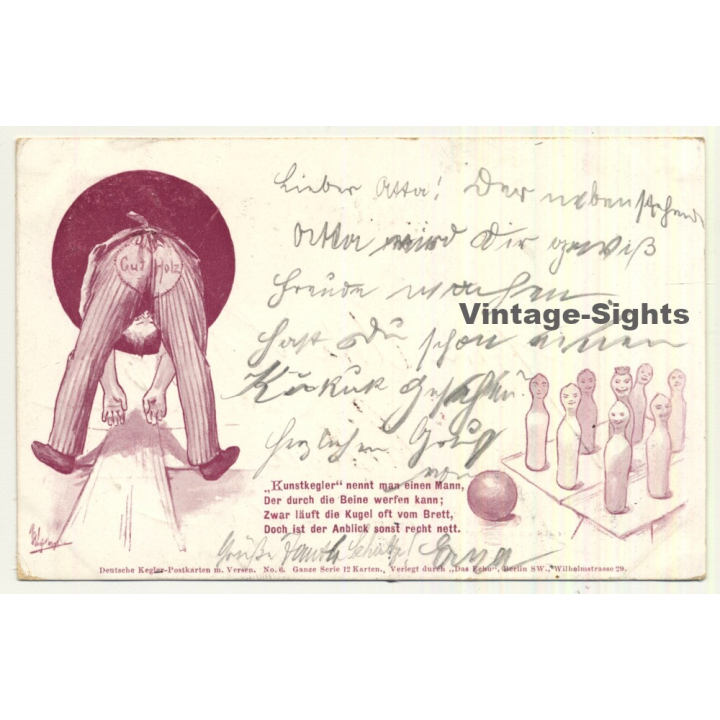 Lieber Otto! Der nebenstehende
Otto wird Dir gewiß
Freude machen
hast Du schon einen
Kukuk gesehen?
herzlichen Gruß
von
Gut Holz!
Vintage-Sights
„Kunstkegler“ nennt man einen Mann,
Der durch die Beine werfen kann;
Zwar läuft die Kugel oft vom Brett,
Doch ist der Anblick sonst recht nett.
Grüße
Deutsche Kegler-Postkarten m. Versen. No. 6. Ganze Serie 12 Karten. Verlegt durch „Das Echo“, Berlin SW., Wilhelmstrasse 29.